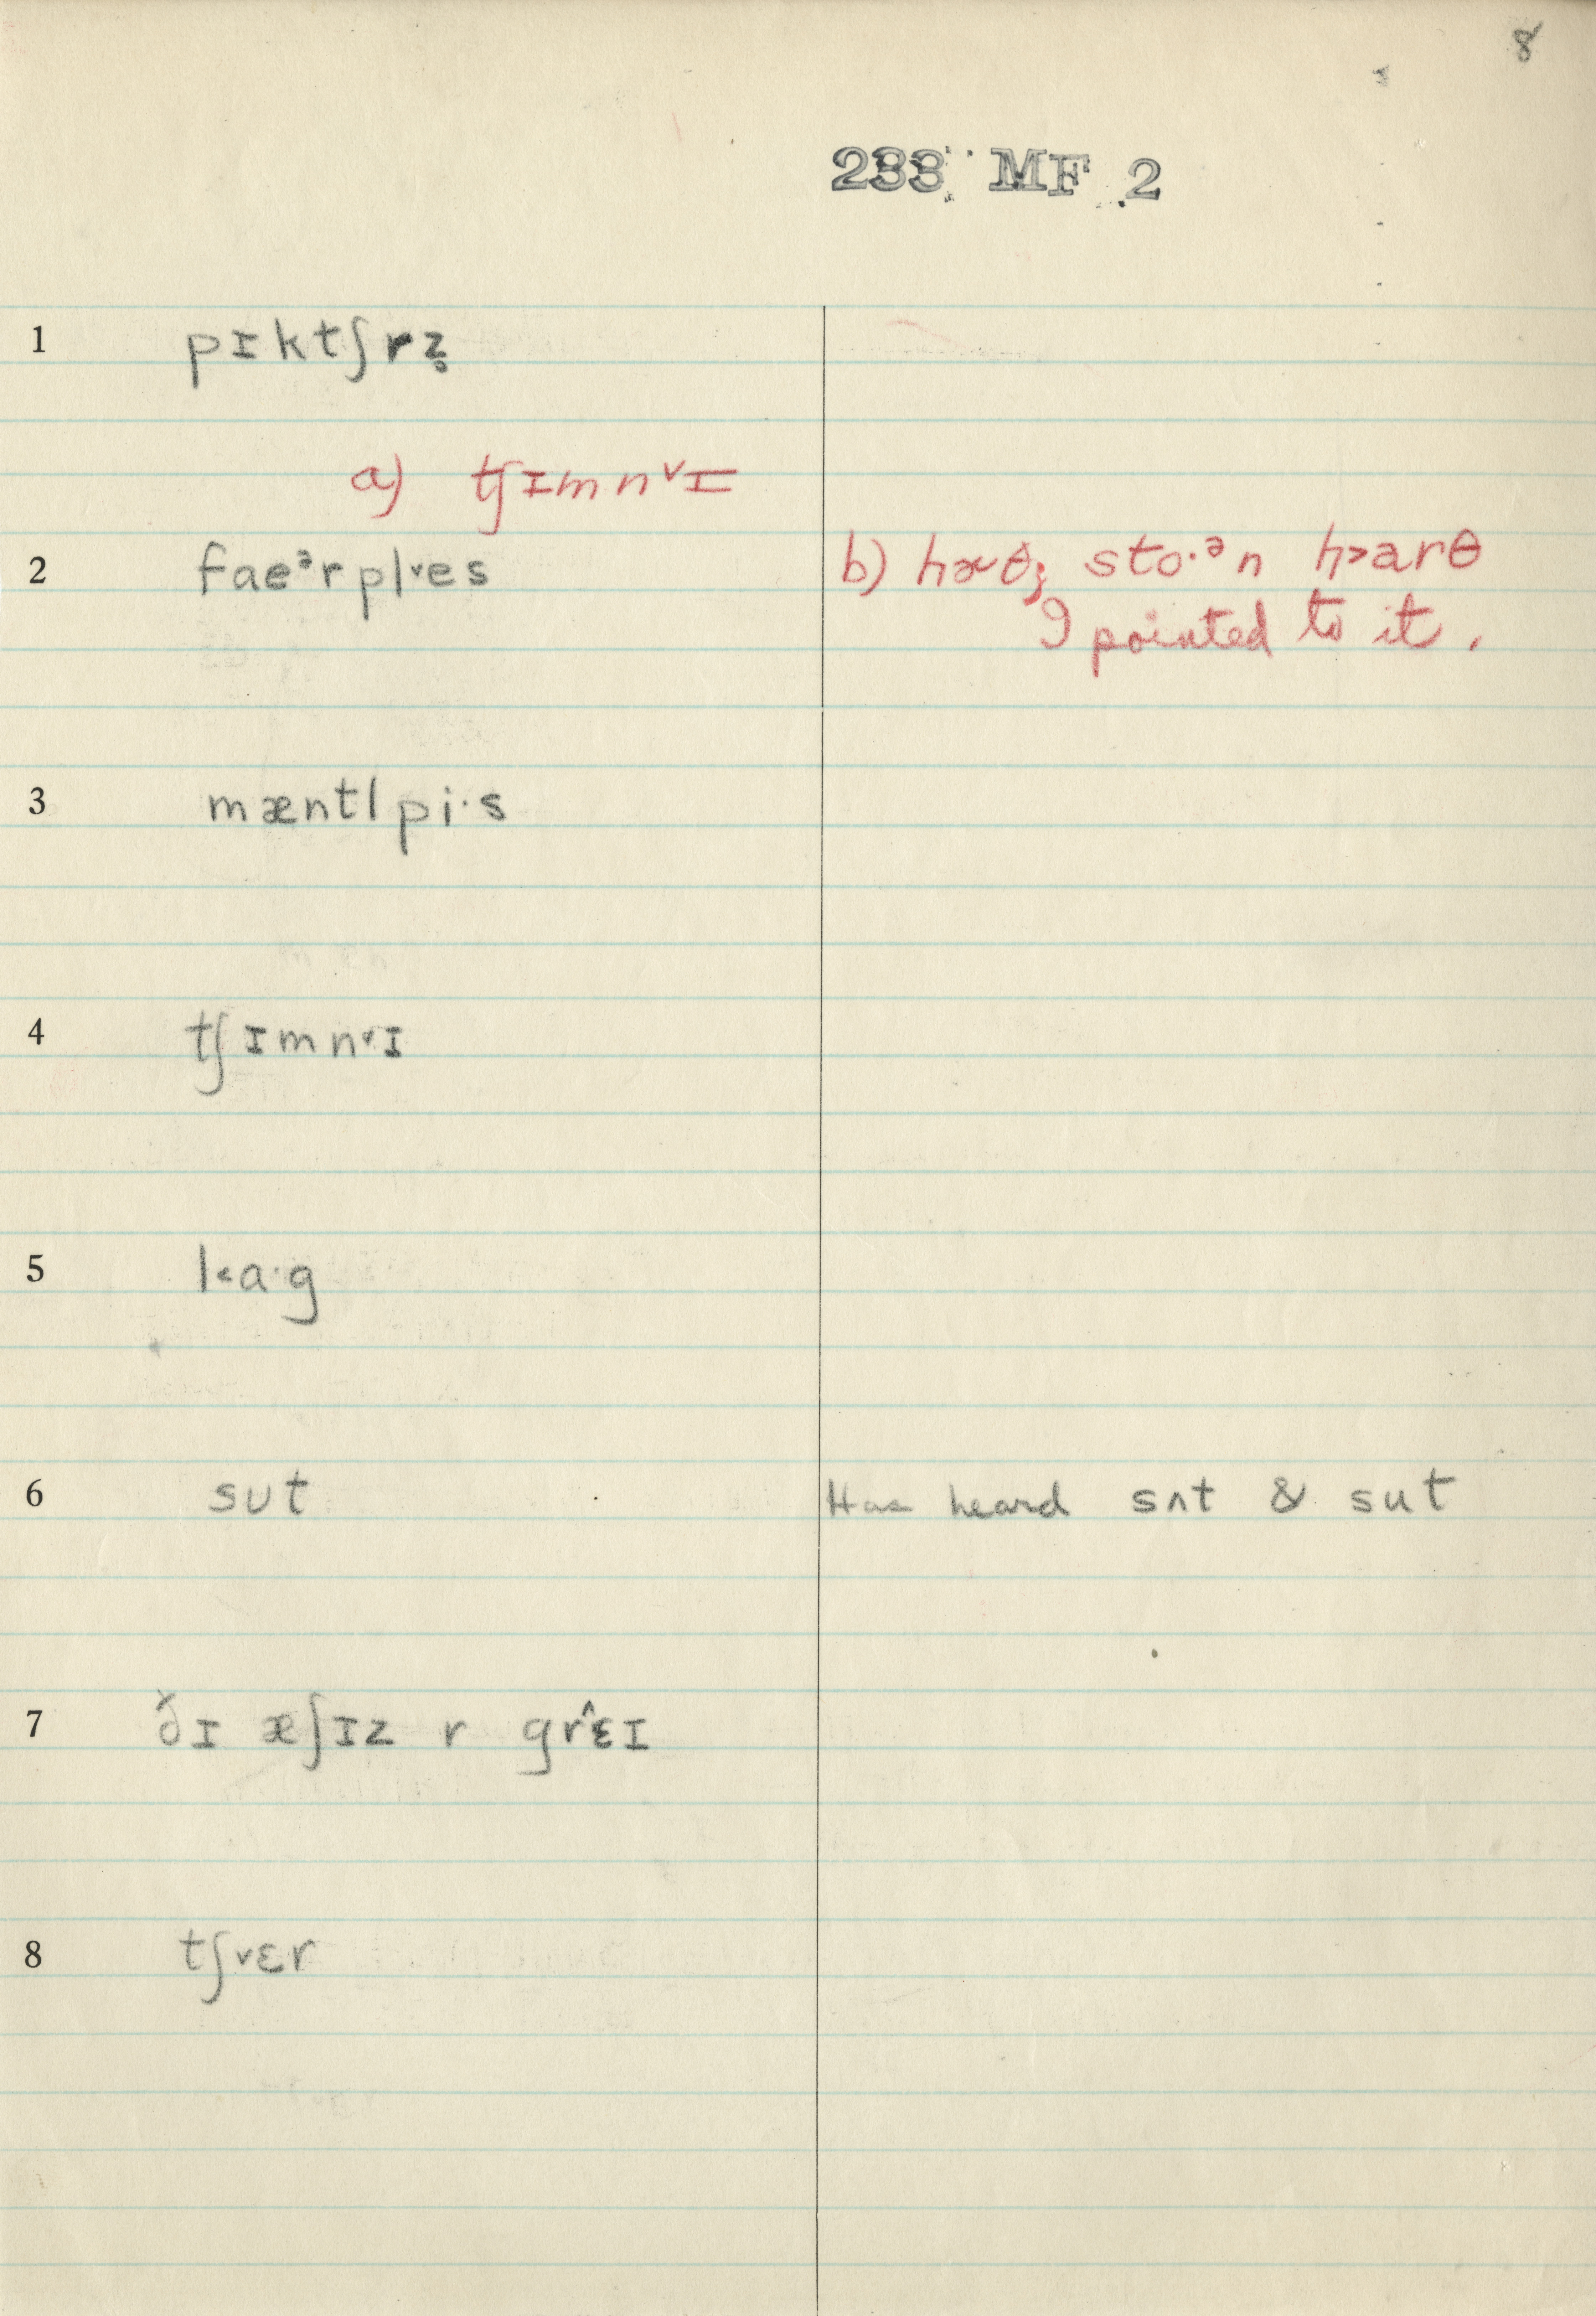 8
233 MF 2
1 pɪktʃrz̥
a) tʃɪmn˅ɪ
2 faeᵊrpl˅es b) hɚθ; sto·ᵊn h˃arθ
I pointed to it.
3 mæntl pi·s
4 tʃɪmn˅ɪ
5 l˂a·g
6 sʊt Has heard sʌt & sut
7 ðɪ æʃɪz r gr˄ɛɪ
8 tʃ˅ɛr